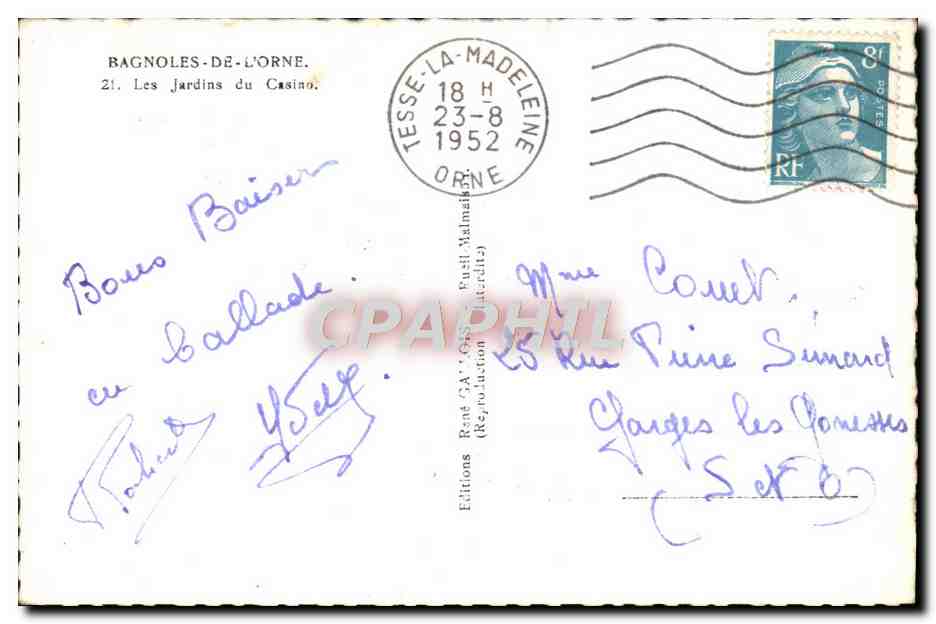 BAGNOLES-DE-L'ORNE.
21. Les Jardins du Casino.
TESSE-LA-MADELEINE
18 H
23-8
1952
ORNE
8f
POSTES
RF
Bons Baisers
en ballade.
Robert
Editions René GALLOIS, Rueil-Malmaison.
(Reproduction Interdite)
CPAPHIL
Mme Couet.
25 Rue Pierre Semard
Garges les Gonesses
(S et O)